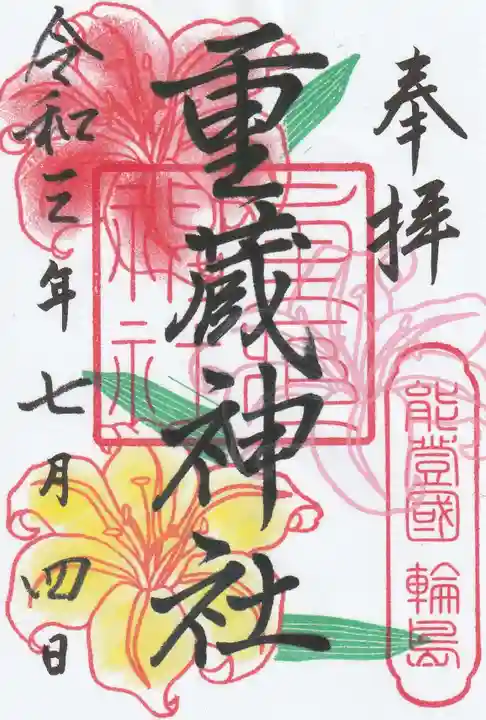 奉拝
能登國 輪島
重蔵神社
令和三年七月四日